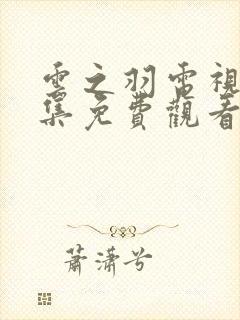 雲之羽電視
集免費觀看
蕭瀟兮